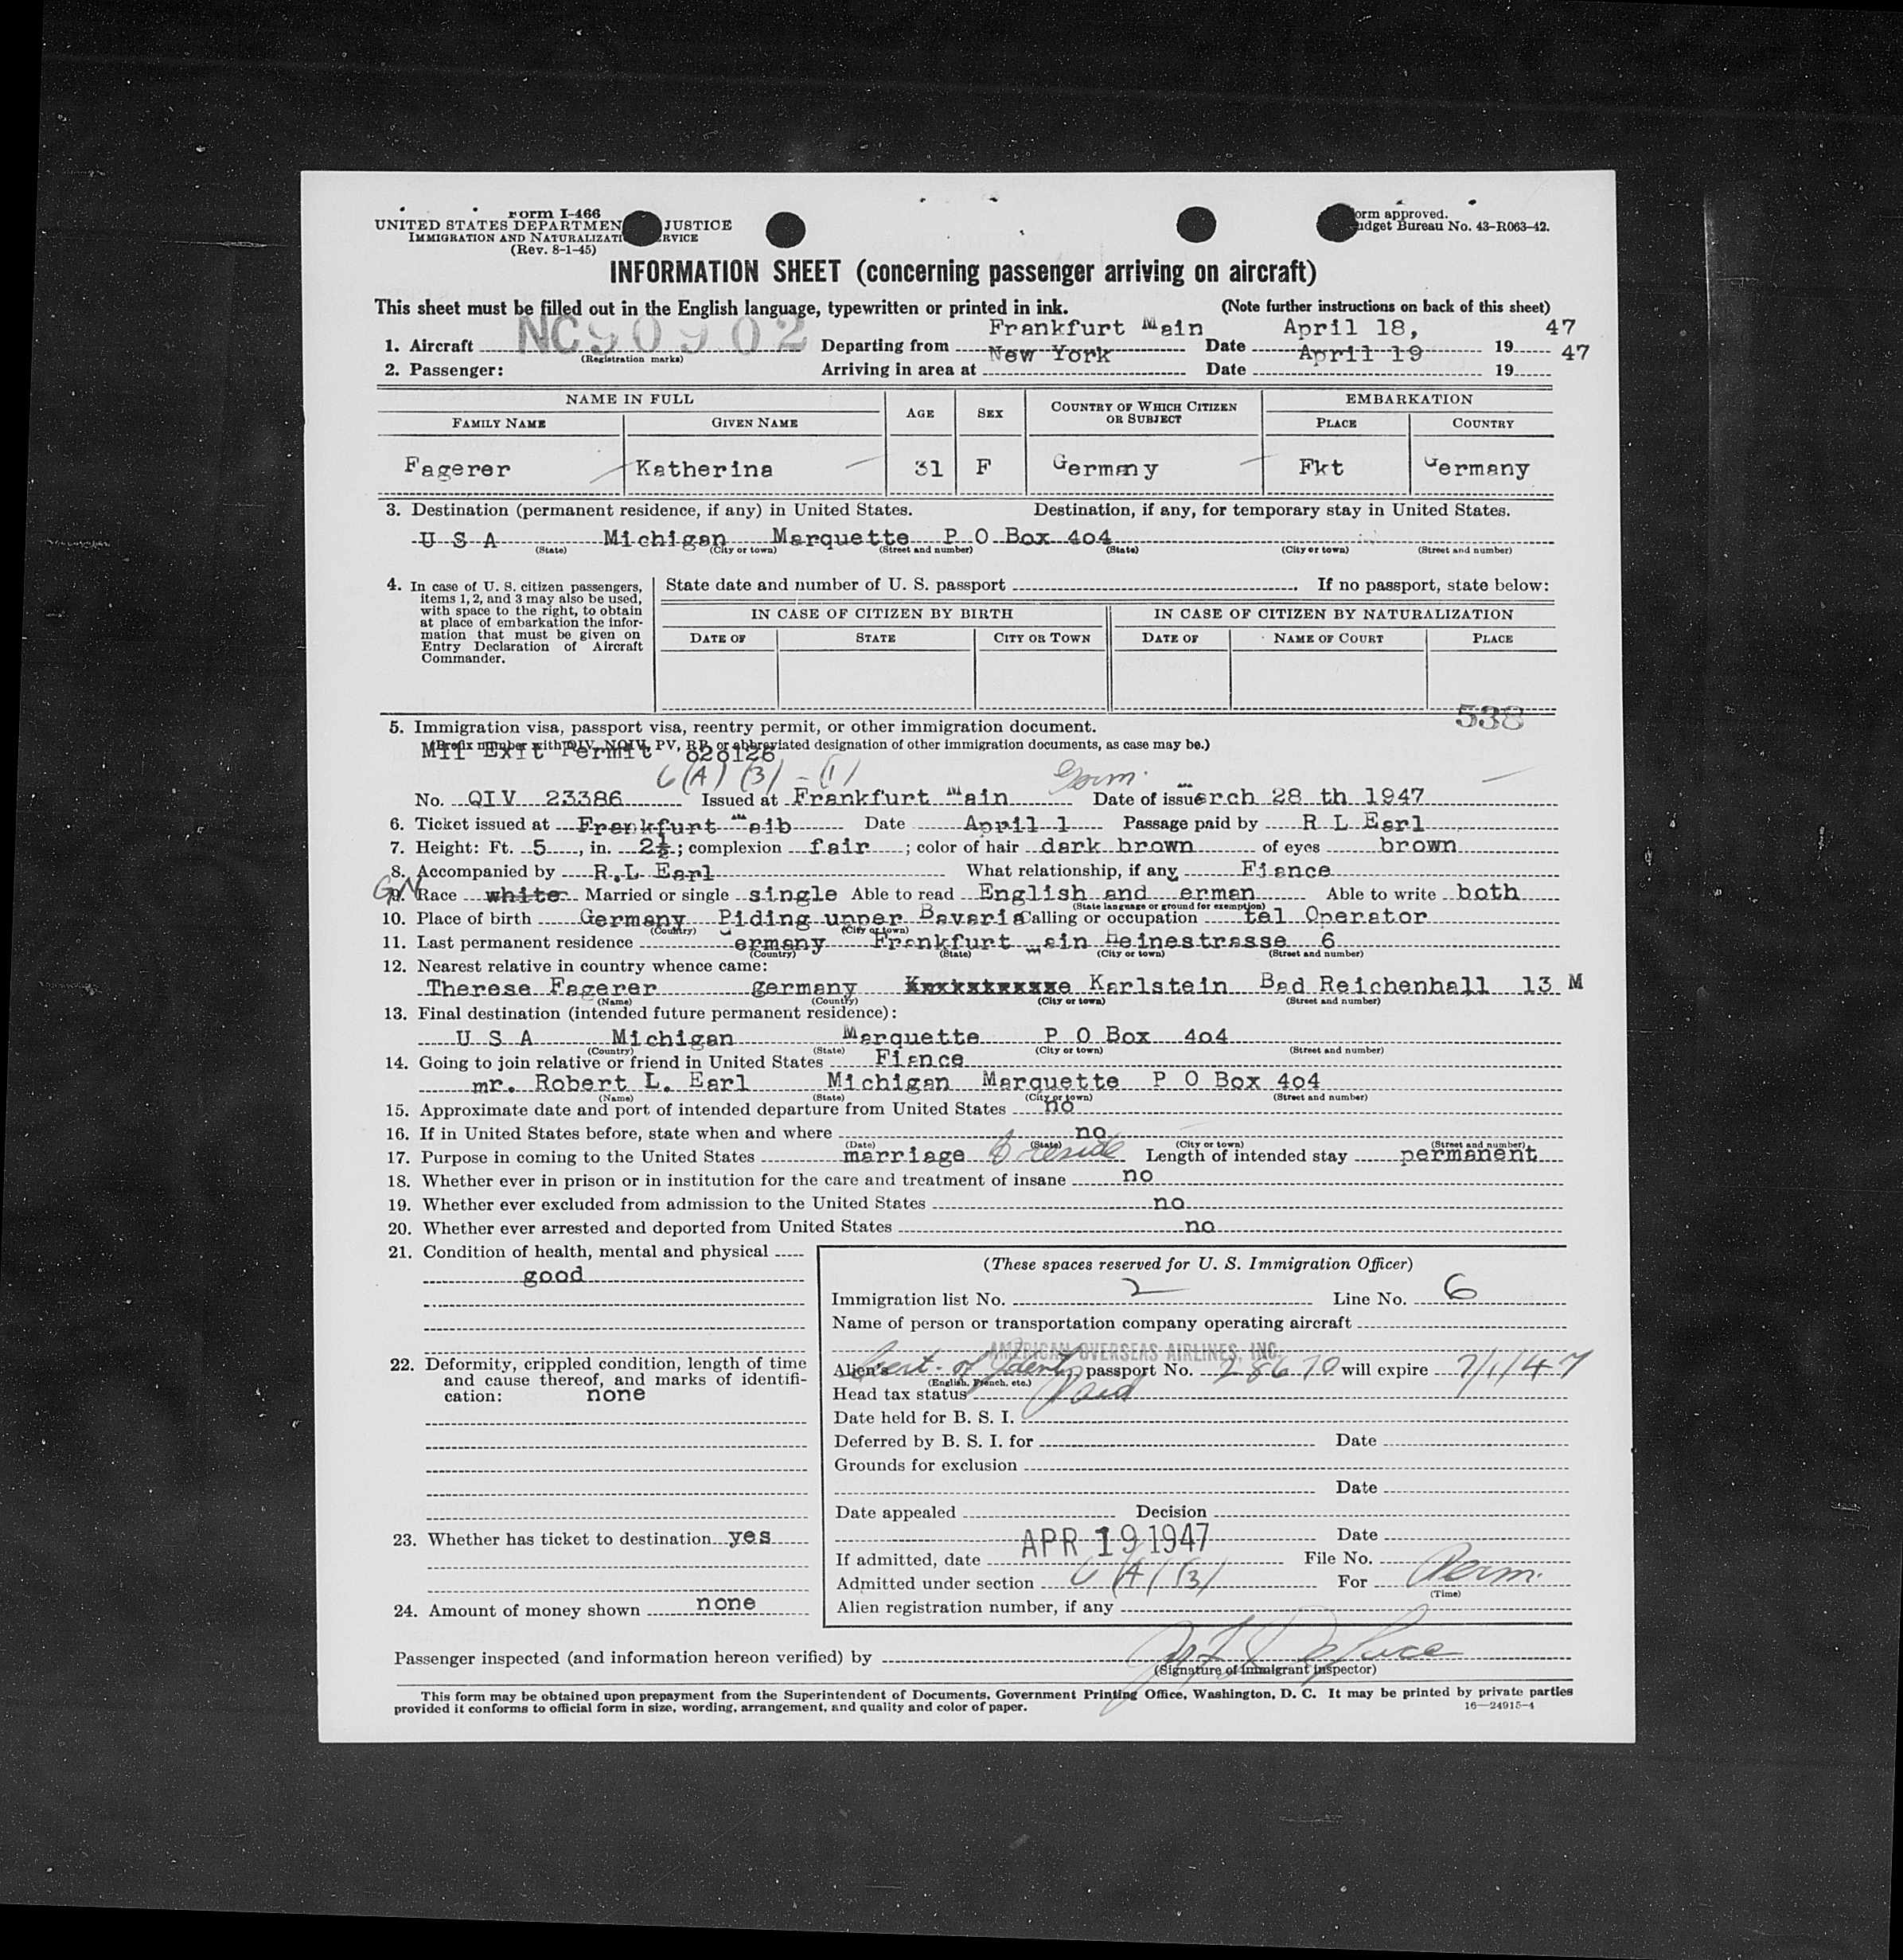 Form I-466
UNITED STATES DEPARTMEN JUSTICE
IMMIGRATION AND NATURALIZATI RVICE
(Rev. 8-1-45)
orm approved.
udget Bureau No. 43-R063-42.
INFORMATION SHEET (concerning passenger arriving on aircraft)
This sheet must be filled out in the English language, typewritten or printed in ink. (Note further instructions on back of this sheet)
1. Aircraft NC90902 (Registration marks) Departing from Frankfurt Main Date April 18, 19 47
2. Passenger: Arriving in area at New York Date April 19 19 47
NAME IN FULL AGE SEX COUNTRY OF WHICH CITIZEN OR SUBJECT EMBARKATION
FAMILY NAME GIVEN NAME PLACE COUNTRY
Fagerer Katherina 31 F Germany Fkt Germany
3. Destination (permanent residence, if any) in United States. Destination, if any, for temporary stay in United States.
U S A Michigan Marquette P O Box 404
(State) (City or town) (Street and number) (State) (City or town) (Street and number)
4. In case of U. S. citizen passengers, items 1, 2, and 3 may also be used, with space to the right, to obtain at place of embarkation the information that must be given on Entry Declaration of Aircraft Commander.
State date and number of U. S. passport . If no passport, state below:
IN CASE OF CITIZEN BY BIRTH IN CASE OF CITIZEN BY NATURALIZATION
DATE OF STATE CITY OR TOWN DATE OF NAME OF COURT PLACE
538
5. Immigration visa, passport visa, reentry permit, or other immigration document.
(Prefix number with QIV, NQIV, PV, RP, or abbreviated designation of other immigration documents, as case may be.)
Mil Exit Permit 028126
6(A) (3) - (1)
No. QIV 23386 Issued at Frankfurt Main Date of issue March 28 th 1947
6. Ticket issued at Frankfurt Maib Date April 1 Passage paid by R L Earl
7. Height: Ft. 5, in. 2½; complexion fair; color of hair dark brown of eyes brown
8. Accompanied by R.L Earl What relationship, if any Fiance
GN
9. Race white Married or single single Able to read English and erman Able to write both
(State language or ground for exemption)
10. Place of birth Germany Piding upper Bavaria Calling or occupation tel Operator
(Country) (City or town)
11. Last permanent residence Germany Frankfurt Main Heinestrasse 6
(Country) (State) (City or town) (Street and number)
12. Nearest relative in country whence came:
Therese Fagerer germany Karlstein Bad Reichenhall 13 M
(Name) (Country) (City or town) (Street and number)
13. Final destination (intended future permanent residence):
U S A Michigan Marquette P O Box 404
(Country) (State) (City or town) (Street and number)
14. Going to join relative or friend in United States Fiance
mr. Robert L. Earl Michigan Marquette P O Box 404
(Name) (State) (City or town) (Street and number)
15. Approximate date and port of intended departure from United States no
16. If in United States before, state when and where no
(Date) (State) (City or town) (Street and number)
17. Purpose in coming to the United States marriage & reside Length of intended stay permanent
18. Whether ever in prison or in institution for the care and treatment of insane no
19. Whether ever excluded from admission to the United States no
20. Whether ever arrested and deported from United States no
21. Condition of health, mental and physical
good
22. Deformity, crippled condition, length of time and cause thereof, and marks of identification: none
23. Whether has ticket to destination yes
24. Amount of money shown none
(These spaces reserved for U. S. Immigration Officer)
Immigration list No. 2 Line No. 6
Name of person or transportation company operating aircraft
AMERICAN OVERSEAS AIRLINES, INC.
Alien's Cert. of Ident. passport No. 28670 will expire 7/1/47
(English, French, etc.)
Head tax status Paid
Date held for B. S. I.
Deferred by B. S. I. for Date
Grounds for exclusion
Date
Date appealed Decision
Date
If admitted, date APR 19 1947 File No.
Admitted under section 6(A)(3) For Perm.
(Time)
Alien registration number, if any
Passenger inspected (and information hereon verified) by
(Signature of immigrant inspector)
This form may be obtained upon prepayment from the Superintendent of Documents, Government Printing Office, Washington, D. C. It may be printed by private parties
provided it conforms to official form in size, wording, arrangement, and quality and color of paper. 16—24915-4